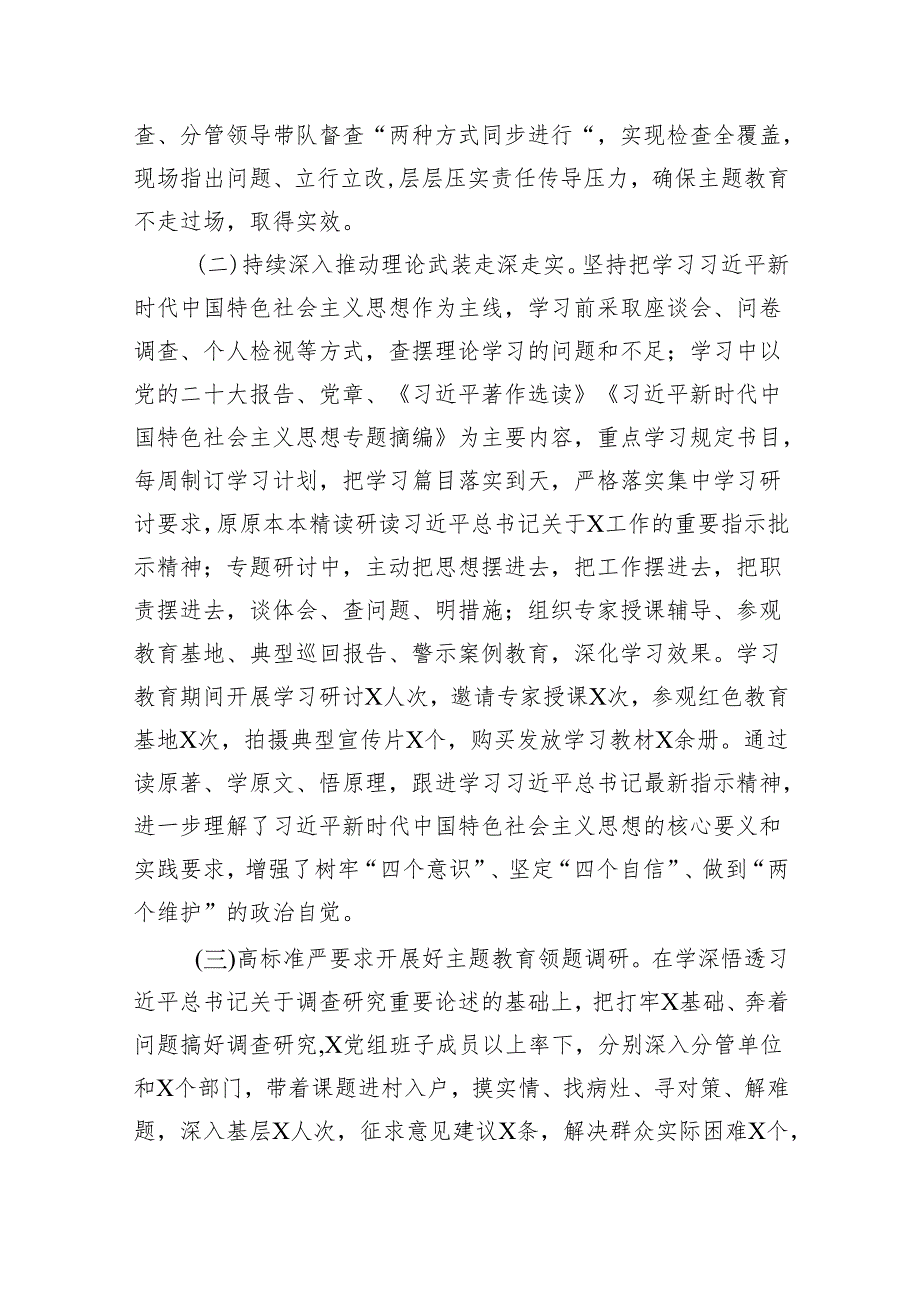 查、分管领导带队督查“两种方式同步进行“，实现检查全覆盖，
现场指出问题、立行立改,层层压实责任传导压力，确保主题教育
不走过场，取得实效。
(二)持续深入推动理论武装走深走实。坚持把学习习近平新
时代中国特色社会主义思想作为主线，学习前采取座谈会、问卷
调查、个人检视等方式，查摆理论学习的问题和不足；学习中以
党的二十大报告、党章、《习近平著作选读》《习近平新时代中
国特色社会主义思想专题摘编》为主要内容，重点学习规定书目，
每周制订学习计划，把学习篇目落实到天，严格落实集中学习研
讨要求，原原本本精读研读习近平总书记关于X工作的重要指示批
示精神；专题研讨中，主动把思想摆进去，把工作摆进去，把职
责摆进去，谈体会、查问题、明措施；组织专家授课辅导、参观
教育基地、典型巡回报告、警示案例教育，深化学习效果。学习
教育期间开展学习研讨X人次，邀请专家授课X次，参观红色教育
基地X次，拍摄典型宣传片X个，购买发放学习教材X余册。通过
读原著、学原文、悟原理，跟进学习习近平总书记最新指示精神，
进一步理解了习近平新时代中国特色社会主义思想的核心要义和
实践要求，增强了树牢“四个意识”、坚定“四个自信”、做到“两
个维护”的政治自觉。
(三)高标准严要求开展好主题教育领题调研。在学深悟透习
近平总书记关于调查研究重要论述的基础上，把打牢X基础、奔着
问题搞好调查研究,X党组班子成员以上率下，分别深入分管单位
和X个部门，带着课题进村入户，摸实情、找病灶、寻对策、解难
题，深入基层X人次，征求意见建议X条，解决群众实际困难X个，